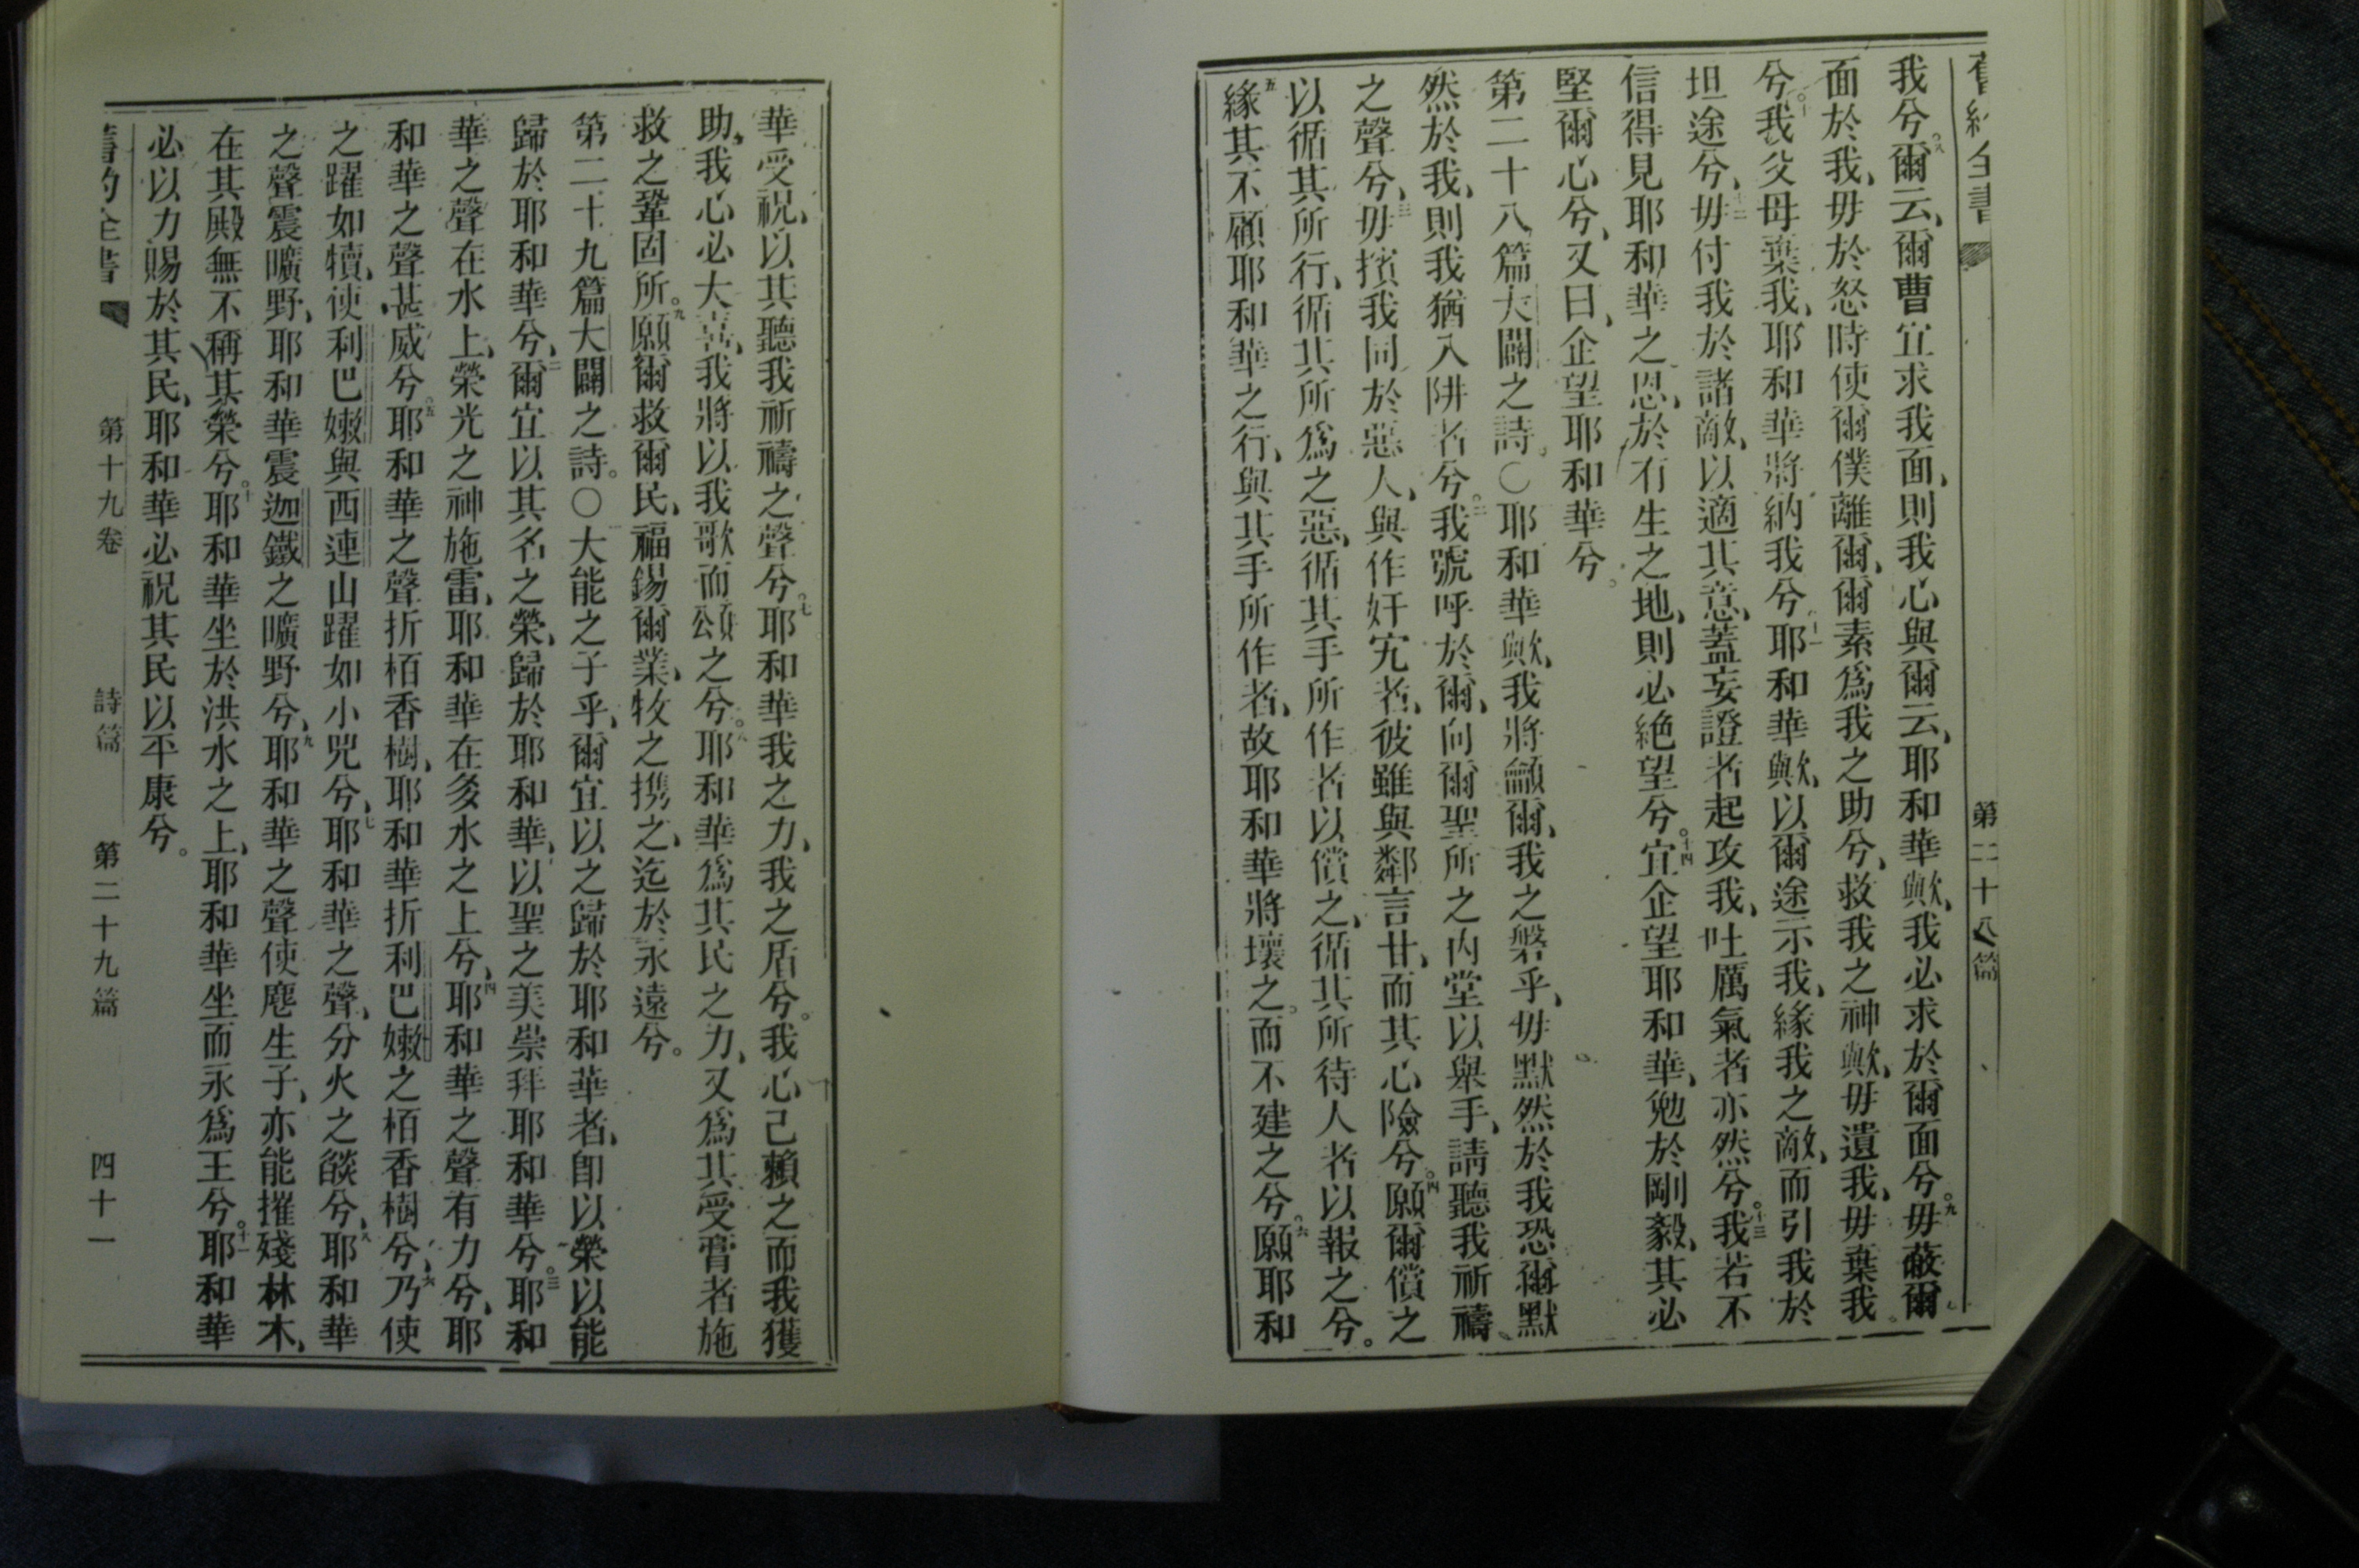 舊約全書 第二十八篇
我兮。八爾云、爾曹宜求我面、則我心與爾云、耶和華歟、我必求於爾面兮。九毋蔽爾
面於我、毋於怒時使爾僕離爾、爾素爲我之助兮、救我之神歟、毋遺我、毋棄我
兮。十我父母棄我、耶和華將納我兮。十一耶和華歟、以爾途示我、緣我之敵、而引我於
坦途兮、十二毋付我於諸敵、以適其意、蓋妄證者起攻我、吐厲氣者亦然兮。十三我若不
信得見耶和華之恩、於有生之地、則必絶望兮。十四宜企望耶和華、勉於剛毅、其必
堅爾心兮、又曰、企望耶和華兮。
第二十八篇大闢之詩。○耶和華歟、我將龥爾、我之磐乎、毋默然於我、恐爾默
然於我、則我猶入阱者兮。二我號呼於爾、向爾聖所之內堂以舉手、請聽我祈禱
之聲兮、三毋擯我同於惡人、與作奸宄者、彼雖與鄰言甘、而其心險兮。四願爾償之
以循其所行、循其所爲之惡、循其手所作者以償之、循其所待人者以報之兮。
五緣其不顧耶和華之行、與其手所作者、故耶和華將壞之。而不建之兮。六願耶和
華受祝、以其聽我祈禱之聲兮。七耶和華我之力、我之盾兮。我心已賴之而我獲
助、我心必大喜、我將以我歌而頌之兮。八耶和華爲其民之力、又爲其受膏者施
救之鞏固所。九願爾救爾民、福錫爾業、牧之携之、迄於永遠兮。
第二十九篇大闢之詩。○大能之子乎、爾宜以之歸於耶和華者、卽以榮以能
歸於耶和華兮、二爾宜以其名之榮、歸於耶和華、以聖之美崇拜耶和華兮。三耶和
華之聲在水上、榮光之神施雷、耶和華在多水之上兮、四耶和華之聲有力兮、耶
和華之聲、甚威兮。五耶和華之聲折栢香樹、耶和華折利巴嫩之栢香樹兮、六乃使
之躍如犢、使利巴嫩與西連山躍如小兕兮、七耶和華之聲、分火之燄兮、八耶和華
之聲震曠野、耶和華震迦鐵之曠野兮、九耶和華之聲使麀生子、亦能摧殘林木、
在其殿無不稱其榮兮。十耶和華坐於洪水之上、耶和華坐而永爲王兮。十一耶和華
必以力賜於其民、耶和華必祝其民以平康兮。
舊約全書 第十九卷 詩篇 第二十九篇 四十一